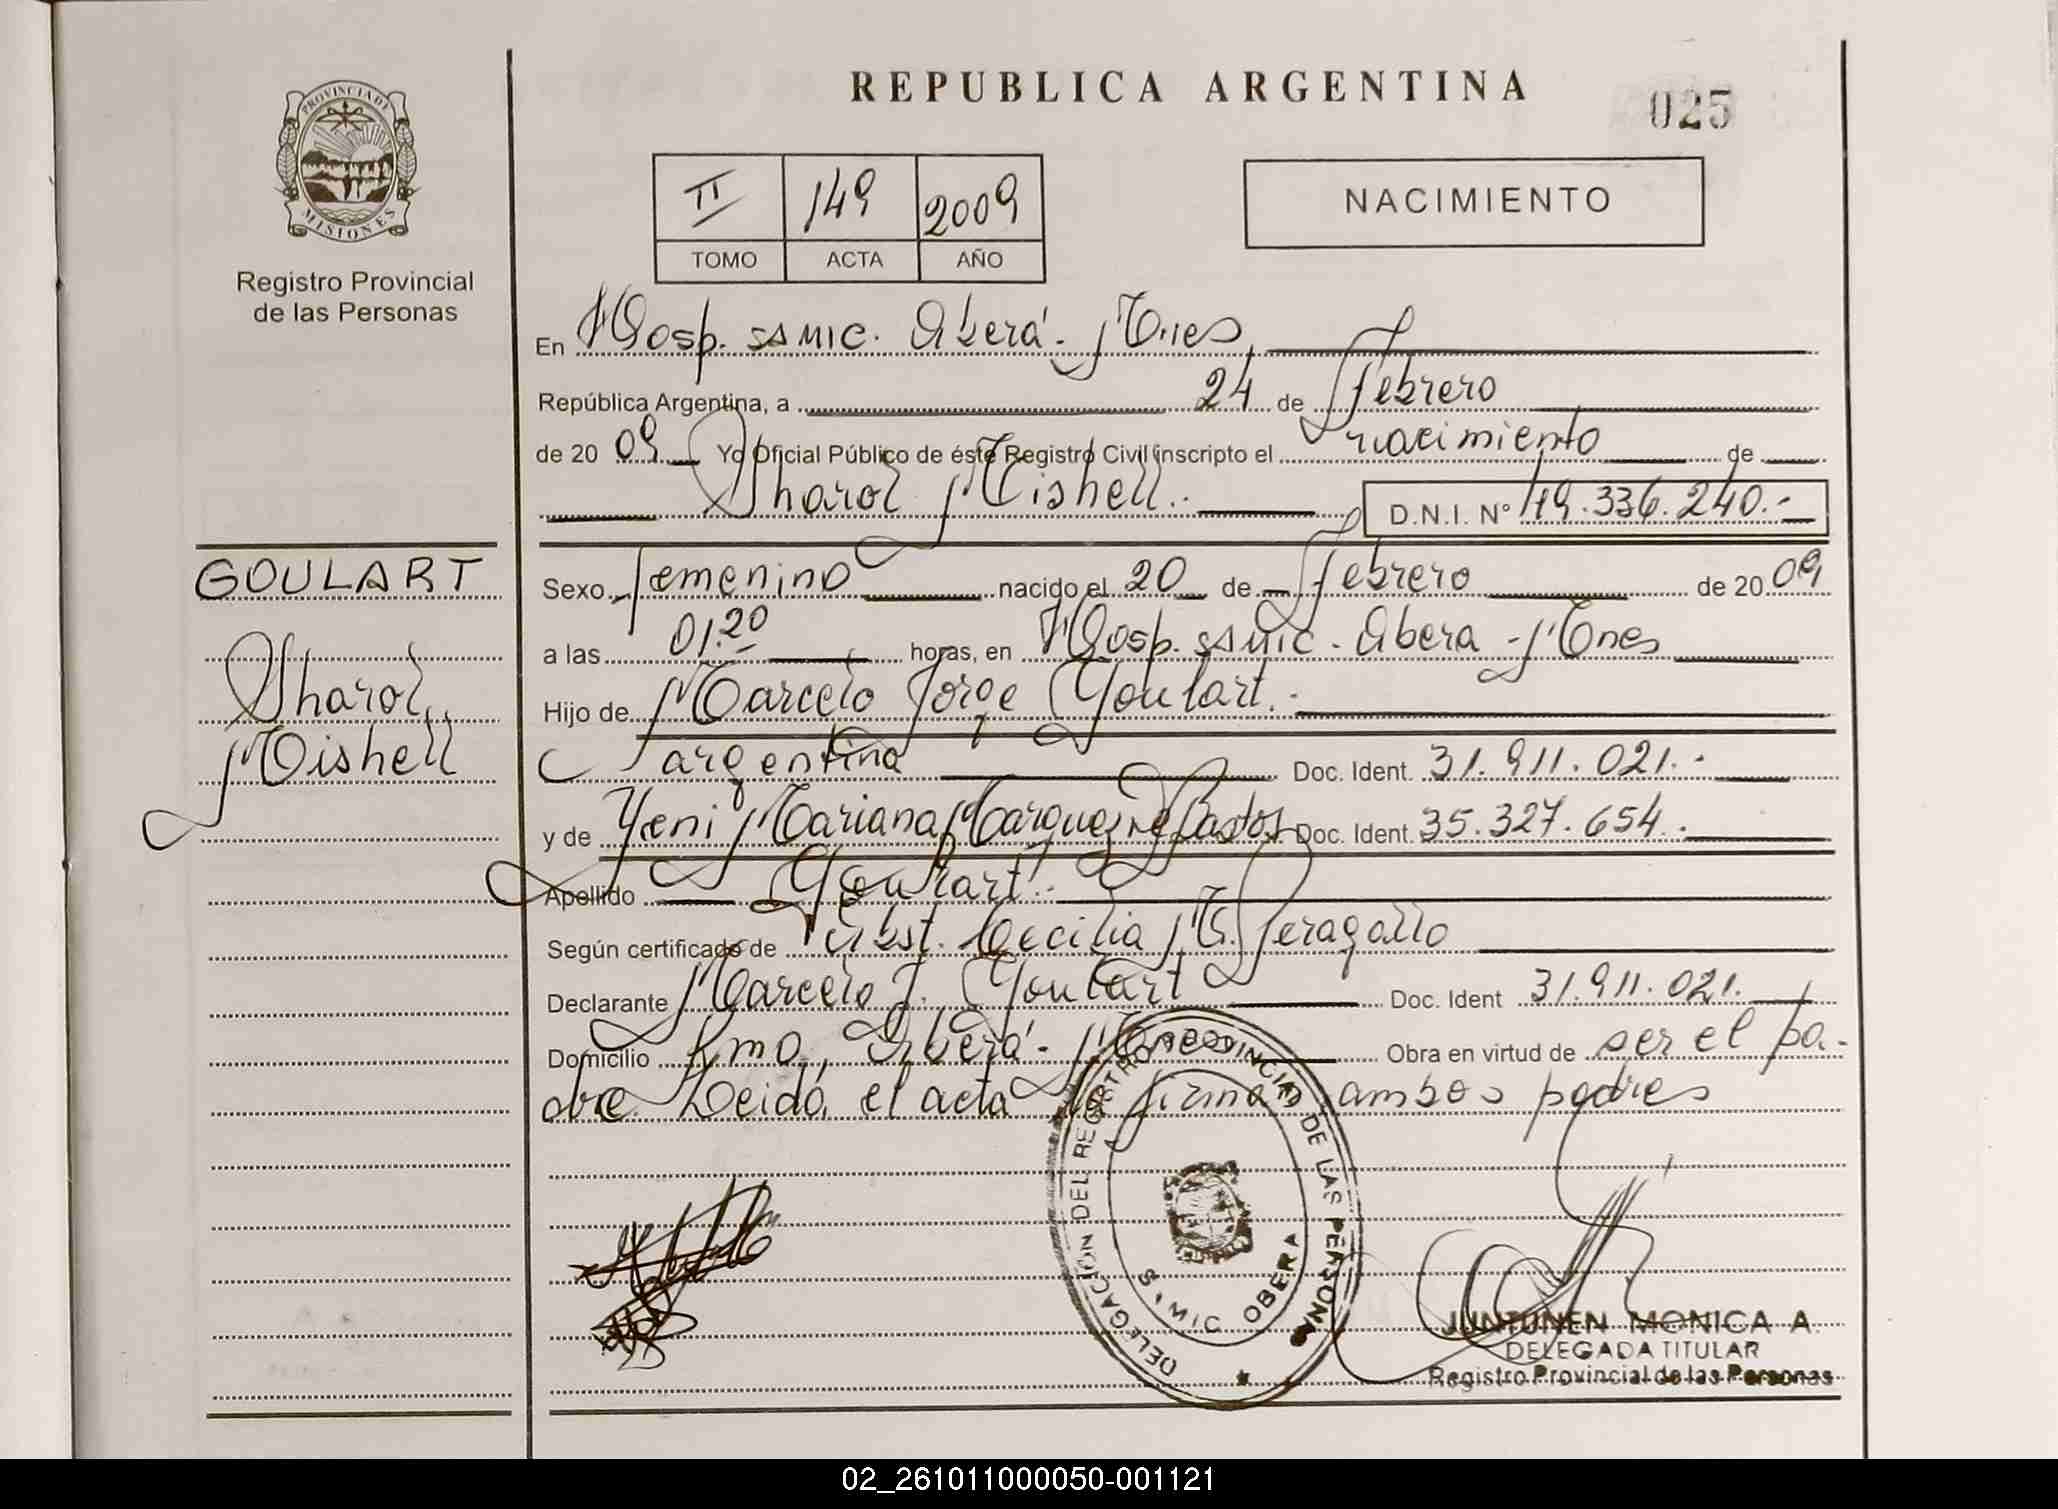 REPUBLICA ARGENTINA
025
PROVINCIA DE
MISIONES
Registro Provincial
de las Personas
II 149 2009
TOMO ACTA AÑO
NACIMIENTO
En Hosp. SAMIC. Oberá - Mnes
República Argentina, a 24 de Febrero
de 20 09 Yo Oficial Público de éste Registro Civil inscripto el nacimiento de
Sharol Mishell. D.N.I. Nº 49.336.240.-
GOULART
Sharol
Mishell
Sexo femenino nacido el 20 de febrero de 20 09
a las 01.20 horas, en Hosp. SAMIC - Obera - Mnes
Hijo de Marcelo Jorge Goulart.-
argentina Doc. Ident. 31.911.021.-
y de Yeni Mariana Marquez Bastos Doc. Ident. 35.327.654.-
Apellido Goulart.-
Según certificado de Obst. Cecilia M. Peragallo
Declarante Marcelo J. Goulart Doc. Ident 31.911.021.
Domicilio Kmo, Oberá - Mnes Obra en virtud de ser el pa-
dre. Leida, el acta la firman ambos padres
DELEGACIÓN DEL REGISTRO PROVINCIAL DE LAS PERSONAS
SAMIC OBERA
JUNTUNEN MONICA A.
DELEGADA TITULAR
Registro Provincial de las Personas
02_261011000050-001121